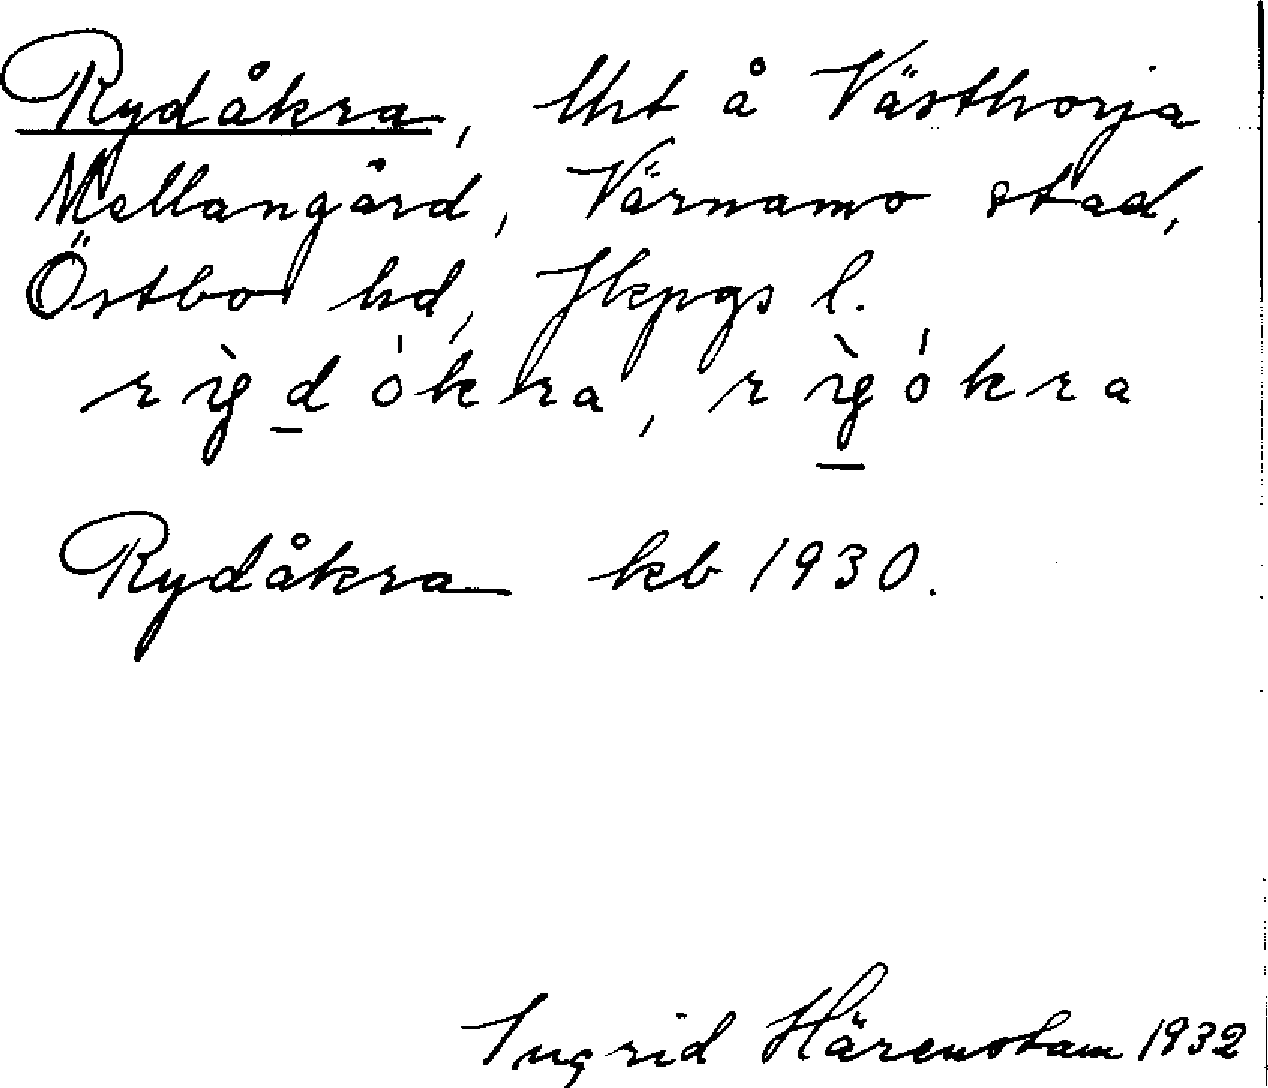 Rydåkra, lht å Västhorja
Mellangård, Värnamo stad,
Östbo hd, Jkpgs l.
rỳdókra, rỳókra
Rydåkra kb 1930.
Ingrid Härenstam 1932